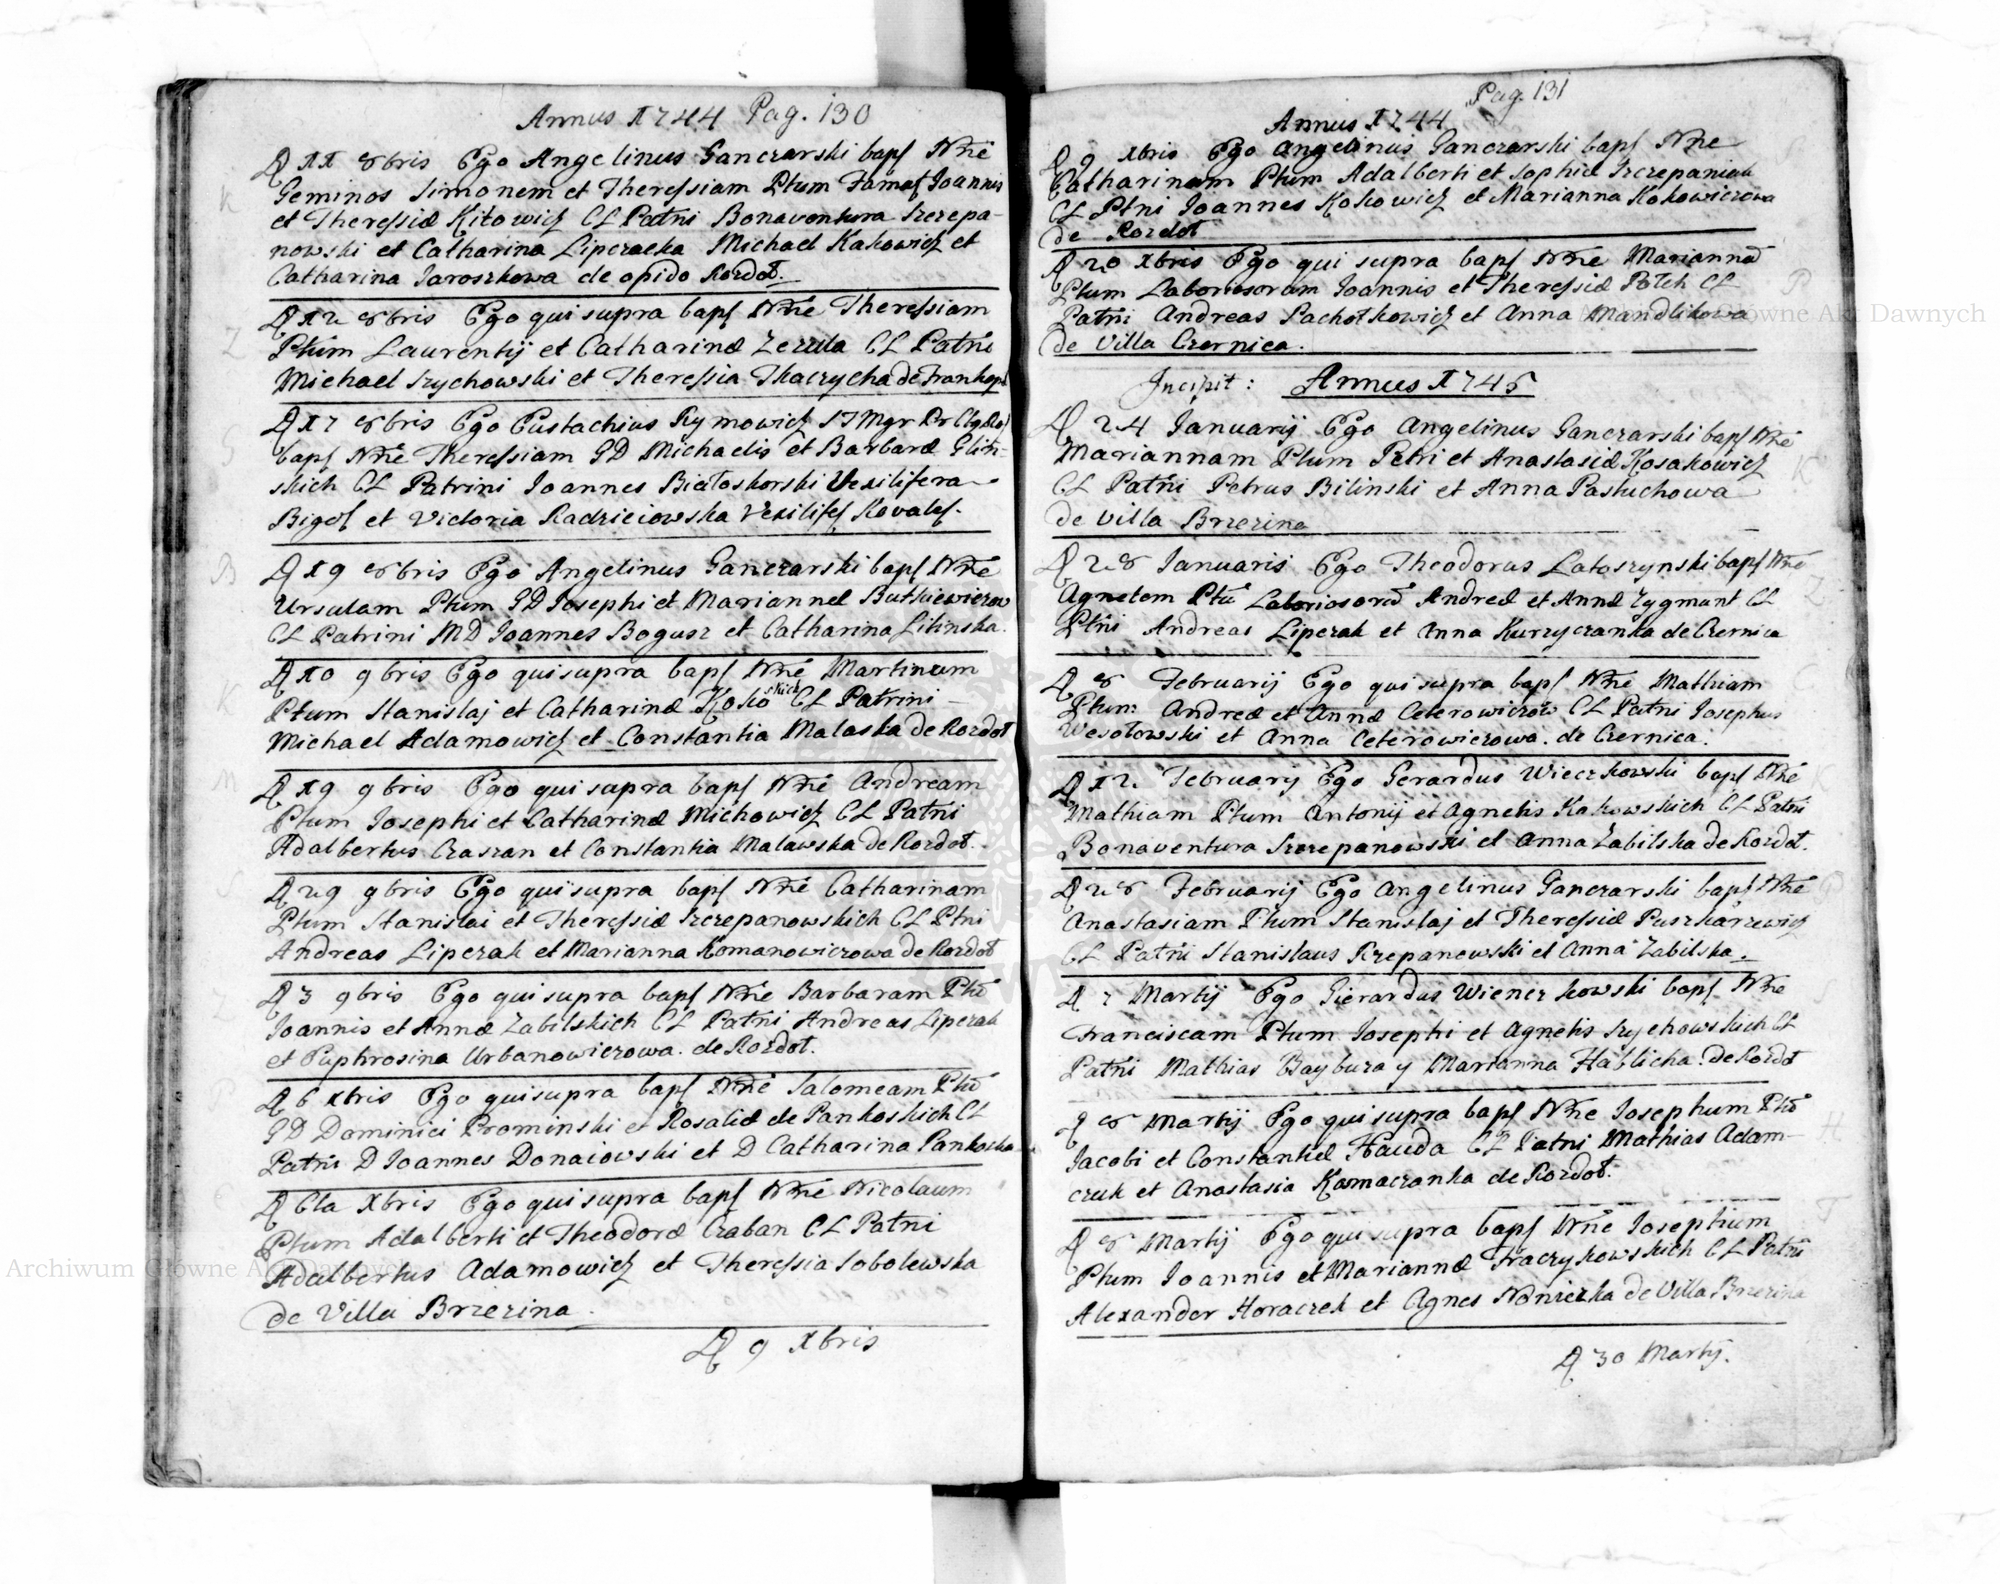 Annus 1744 Pag. 130
D 11 8bris Ego Angelinus Ganczarski bapt Nne
K
Geminos Simonem et Theressiam Ptum Famat Joannis
et Theressiæ Kitowicz CL Patni Bonaventura Szczepa-
nowski et Catharina Lipczacka Michael Kakowicz et
Catharina Jaroszkowa de opido Rozdoł.
D 12 8bris Ego qui supra bapt Nne Theressiam
Z
Ptum Laurentij et Catharinæ Zezula CL Patni
Michael Szychowski et Theressia Tkaczycha de
D 17 8bris Ego Eustachius Rymowicz
G
bapt Nne Theressiam GD Michaelis et Barbaræ Glin-
skich CL Patrini Joannes Białoskorski Vexilifera
et Victoria Radzieiowska
B
D 19 8bris Ego Angelinus Ganczarski bapt Nne
Ursulam Ptum GD Josephi et Mariannæ Butkiewiczow
CL Patrini MD Joannes Bogusz et Catharina Lilinska.
D 10 9bris Ego qui supra bapt Nne Martinum
K
Ptum Stanislaj et Catharinæ Koko skich CL Patrini
Michael Adamowicz et Constantia Malaska de Rozdoł
M
D 19 9bris Ego qui supra bapt Nne Andream
Ptum Josephi et Catharinæ Michowicz CL Patni
Adalbertus Czaszan et Constantia Malawska de Rozdoł.
S
D 29 9bris Ego qui supra bapt Nne Catharinam
Ptum Stanislai et Theressiæ Szczepanowskich CL Ptni
Andreas Lipczak et Marianna Romanowiczowa de Rozdoł
Z
D 3 9bris Ego qui supra bapt Nne Barbaram Ptu
Joannis et Annæ Zabilskich CL Patni Andreas Lipczak
et Euphrosina Urbanowiczowa. de Rozdoł.
P
D 6 Xbris Ego qui supra bapt Nne Salomeam Ptu
GD Dominici Prominski et Rosaliæ de Pankoskich CL
Patni D Joannes Donaiowski et D Catharina Pankoska
D Eta Xbris Ego qui supra bapt Nne Nicolaum
Ptum Adalberti et Theodoræ Czaban CL Patni
Adalbertus Adamowicz et Theressia Sobolewska
de Villa Brzezina.
D 9 Xbris
Pag. 131
Annus 1744
D 9 Xbris Ego Angelinus Ganczarski bapt Nne
S
Catharinam Ptum Adalberti et Sophiæ Szczepaniak
CL Ptni Joannes Kokowicz et Marianna Kokowiczowa
de Rozdoł
D 20 Xbris Ego qui supra bapt Nne Marianna
P
Ptum Laboriosorum Joannis et Theressiæ Połch CL
Patni Andreas Pachołkowicz et Anna Mandlikowa
de Villa Czernica.
Incipit: Annus 1745
D 24 Januarij Ego Angelinus Ganczarski bapt Nne
Mariannam Ptum Petri et Anastasiæ Kosakowicz
K
CL Patni Petrus Bilinski et Anna Pastuchowa
de Villa Brzezina
D 28 Januaris Ego Theodorus Latoszynski bapt Nne
Z
Agnetem Ptu Laboriosoru Andreæ et Annæ Zygmunt CL
Ptni Andreas Lipczak et Anna Kurzyczanka de Czernica
C
D 8 Februarij Ego qui supra bapt Nne Mathiam
Ptum Andreæ et Annæ Ceterowiczow CL Patni Josephus
Wesołowski et Anna Ceterowiczowa. de Czernica.
K
D 12. Februarij Ego Gerardus Wieczkowski bapt Nne
Mathiam Ptum Antonij et Agnetis Kakowskich CL Patni
Bonaventura Szczepanowski et Anna Zabilska de Rozdoł.
P
D 28 Februarij Ego Angelinus Ganczarski bapt Nne
Anastasiam Ptum Stanislaj et Theressiæ Puszkarzewicz
CL Patni Stanislaus Szepanowski et Anna Zabilska.
S
D 7 Martij Ego Gierardus Wienczkowski bapt Nne
Franciscam Ptum Josephi et Agnetis Szychowskich CL
Patni Mathias Baybuza y Marianna Hablicha. de Rozdoł
D 8 Martij Ego qui supra bapt Nne Josephum Ptu
H
Jacobi et Constantiæ Hauda CL Patni Mathias Adam-
czuk et Anastasia Komaczanka de Rozdoł.
T
D 8 Martij Ego qui supra bapt Nne Josephum
Ptum Joannis et Mariannæ Traczykowskich CL Patni
Alexander Horaczek et Agnes de Villa Brzezina
D 30 Martij.
Archiwum Główne Akt Dawnych
Archiwum Główne Akt Dawnych